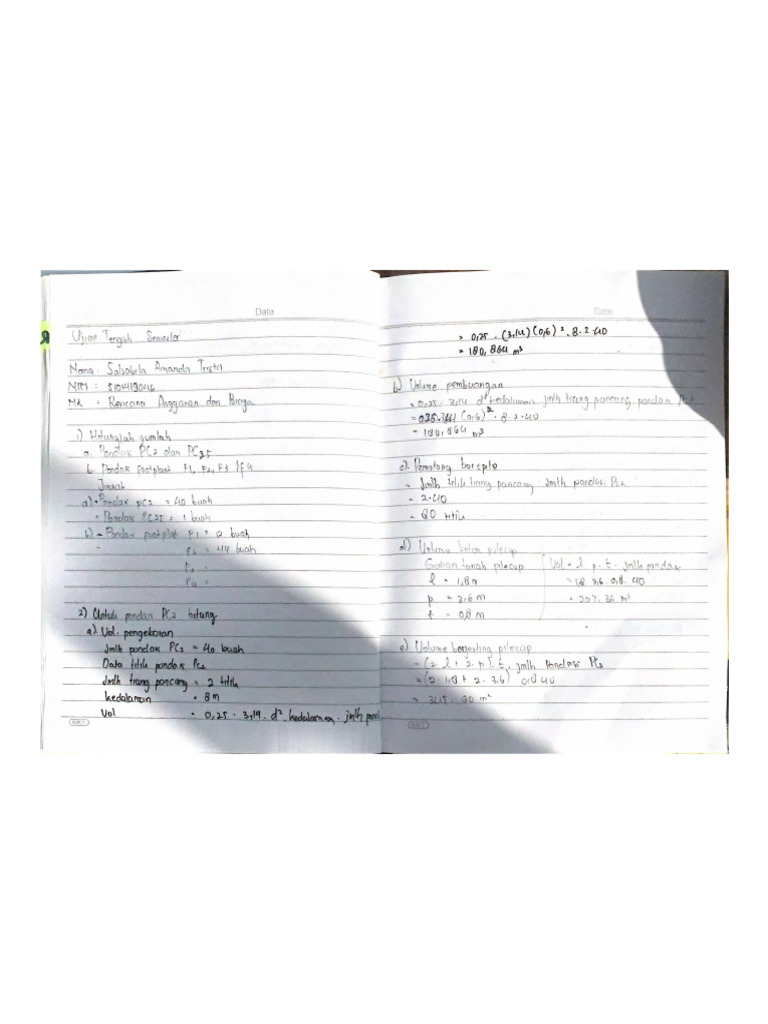 Date
Ujian Tengah Semester
Nama : Salsabila Amanda
NIM : 5104419046
MK : Rencana Anggaran dan Biaya
1) Hitunglah jumlah
a. Pondasi PC2 dan PC25
b. Pondasi footplat F1, F2, F3, F4
Jawab
a) • Pondasi PC2 = 40 buah
• Pondasi PC25 = 1 buah
b) - Pondasi footplat P1 = 12 buah
- P2 = 44 buah
P3 =
P4 =
2) Untuk pondasi PC2 hitung
a). Vol. pengeboran
Jmlh pondasi PC2 = 40 buah
Data titik pondasi PC2
Jmlh tiang pancang = 2 titik
kedalaman = 8m
Vol = 0,25 . 3,14 . d². kedalaman . jmlh pond
Date
= 0,25 . (3,14) (0,6)² . 8 . 2 . 40
= 180,864 m³
b) Volume pembuangan
= 0,25. 3,14 d² kedalaman jmlh tiang pancang, pondasi PC2
= 0,25.3,14 (0,6)² . 8 . 2 . 40
= 180,864 m³
c). Pemotong borepile
= Jmlh titik tiang pancang . Jmlh pondasi PC2
= 2.40
= 80 titik
d) Volume beton pilecap
Galian tanah pilecap
l = 1,8 m
p = 3,6 m
t = 0,8 m
Vol = l p. t. jmlh pondasi
= 1,8 3,6 0,8 . 40
= 207,36 m³
e) Volume bekisting pilecap
= (2 l + 2 . p). t. jmlh Pondasi PC2
= (2 . 1,8 + 2 . 3,6) 0,8 40
= 345,60 m²